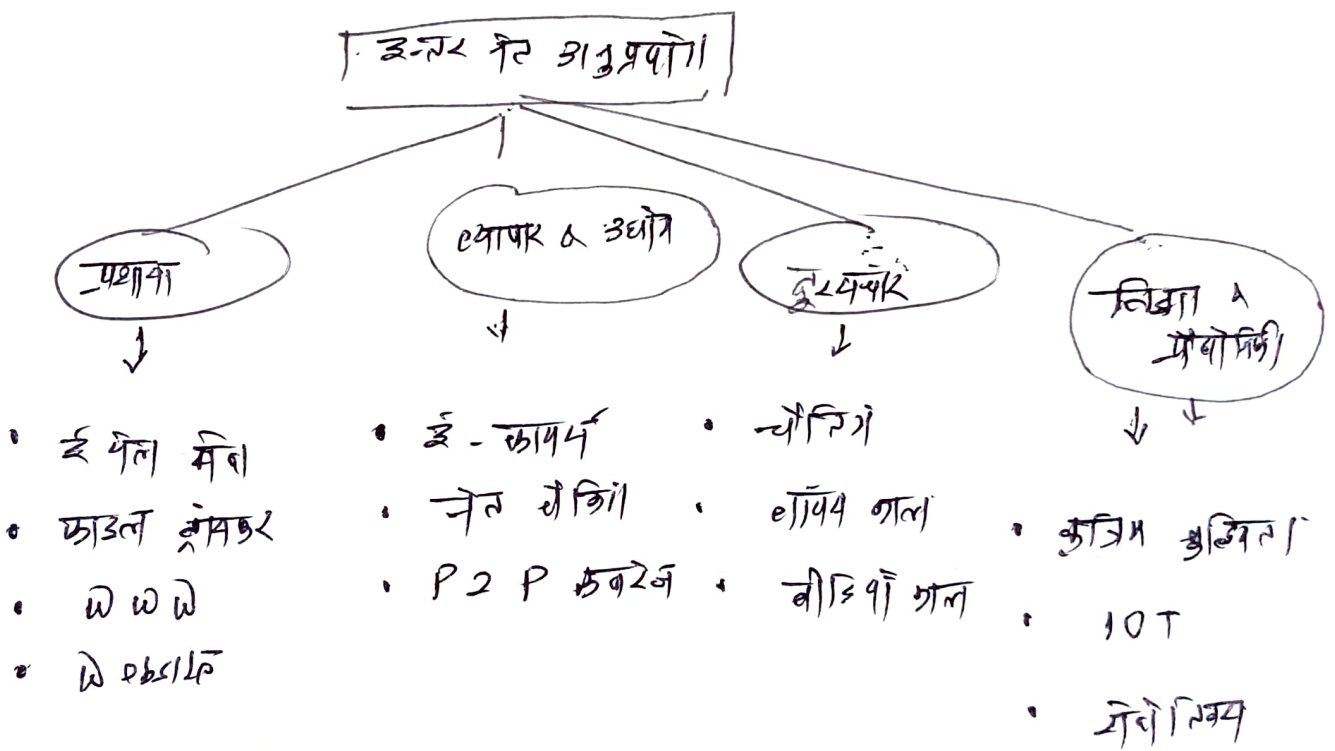 इन्टर नेट अनुप्रयोग
व्यापार & उद्योग
दूरसंचार
शिक्षा &
प्रौद्योगिकी
ई मेल सेवा
फाइल ट्रांसफर
WWW
Website
ई - कामर्स
नेट बैंकिंग
P2P
चैटिंग
वॉयस काल
वीडियो काल
कृत्रिम बुद्धिमत्ता
IOT
रोबोटिक्स